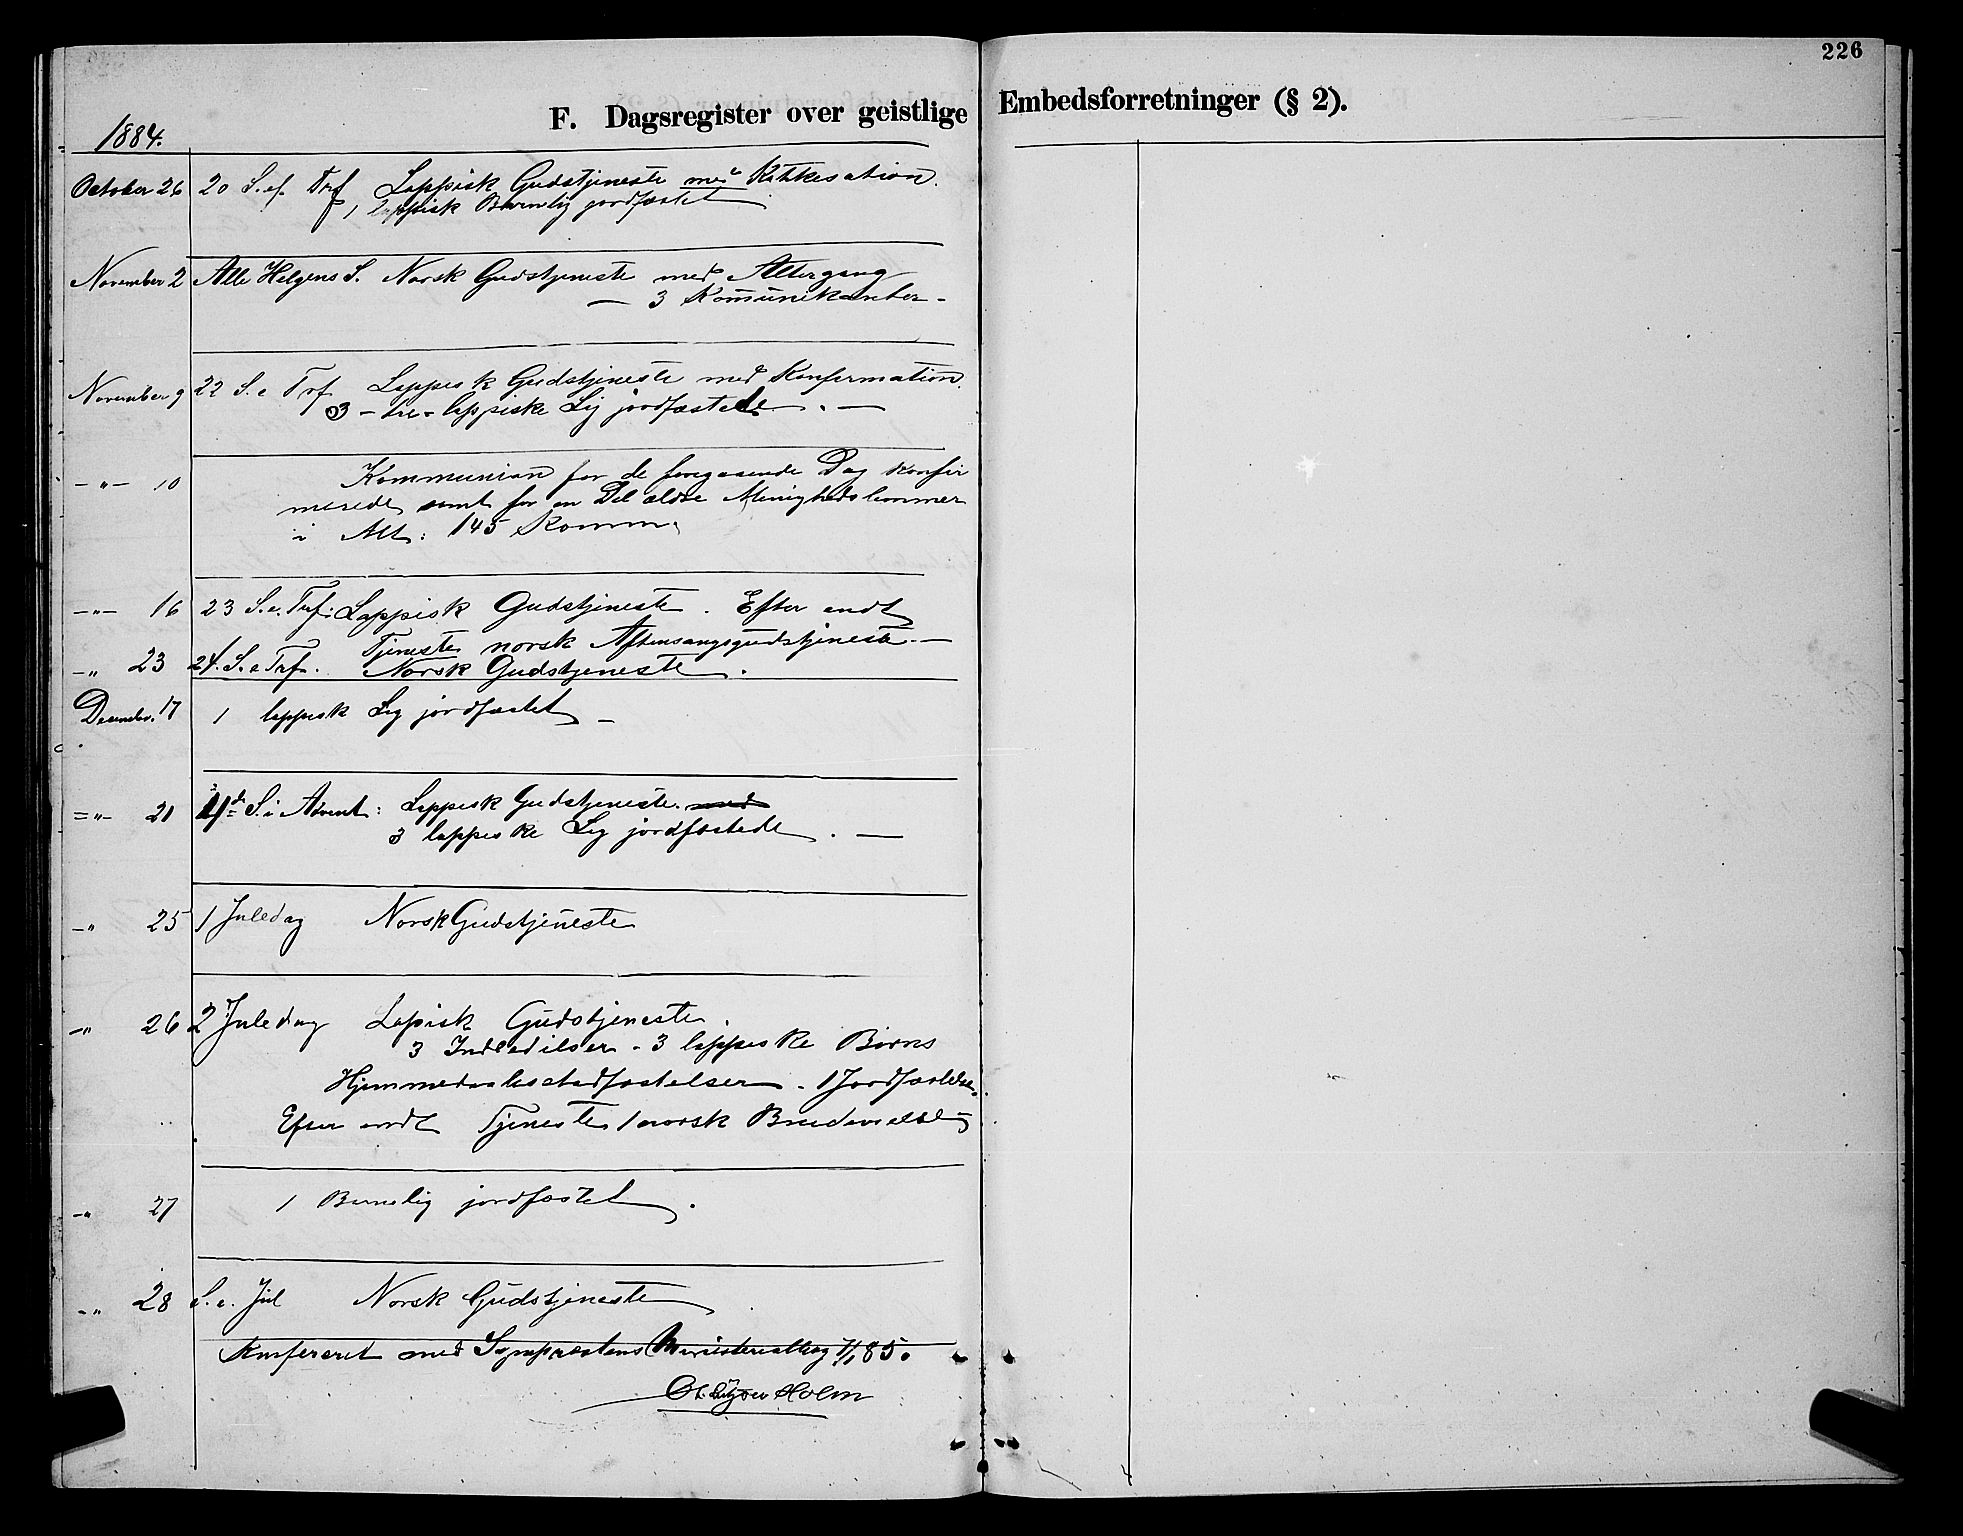 226
F. Dagsregister over geistlige Embedsforretninger (§ 2).
1884.
October 26 20 S. ef. Trf Lappisk Gudstjeneste med Katkesation.
1 lappisk Barnelig jordfæstet
November 2 Alle Helgens S. Norsk Gudstjeneste med Altergang
— 3 Komunikanter -
November 9 22 S. e Trf Lappisk Gudstjeneste med Konfirmation.
3 - tre - lappiske Lig jordfæstede . —
-"- 10 Kommunion for de foregaaende Dag konfir
merede samt for en Del ældre Menighedslemmer
i Alt: 145 Komm.
-"- 16 23 S. e. Trf. Lappisk Gudstjeneste. Efter endt
Tjeneste norsk Aftensangsgudstjeneste. —
-" 23 24. S. e Trf. Norsk Gudstjeneste.
Desember. 17 1 lappisk Lig jordfæstet —
="- 21 4de S. i Advent: Lappisk Gudstjeneste. med
3 lappiske Lig jordfæstede . —
-" 25 1 Juledag Norsk Gudstjeneste
-" 26 2 Juledag Lapisk Gudstjeneste.
3 Indledelser - 3 lappiske Børns
Hjemmedaabsstadfæstelser - 1 Jordfæstelse.
Efter endt Tjeneste 1 norsk Brudevielse
-" 27 1 Barnelig jordfæstet .
-" 28 S. e. Jul Norsk Gudstjeneste
Konfereret med Sognepræstens Ministerialbog 7/1 85.
Holm